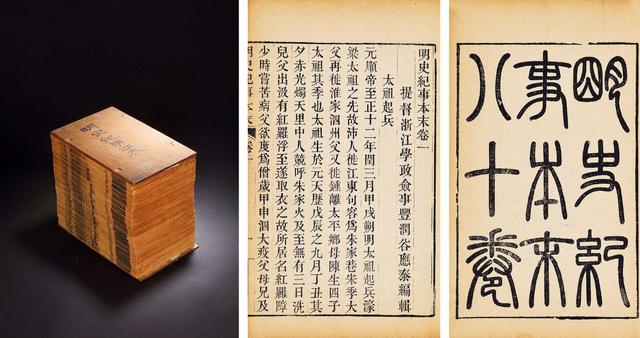 明史紀事本末卷一
提督浙江學政僉事豐潤谷應泰編輯
太祖起兵
元順帝至正十二年閏三月甲戌朔明太祖起兵濠
梁太祖之先故沛人徙江東句容爲朱家巷宋季大
父再徙淮家泗州父又徙鍾離太平鄉母陳生四子
太祖其季也太祖生於元天歷戊辰之九月丁丑其
夕赤光燭天里中人競呼朱家火及至無有三日洗
兒父出汲有紅羅浮至遂取衣之故所居名紅羅障
少時嘗苦病父欲度爲僧歲甲申泗大疫父母兄及
明史紀
事本末
八十卷